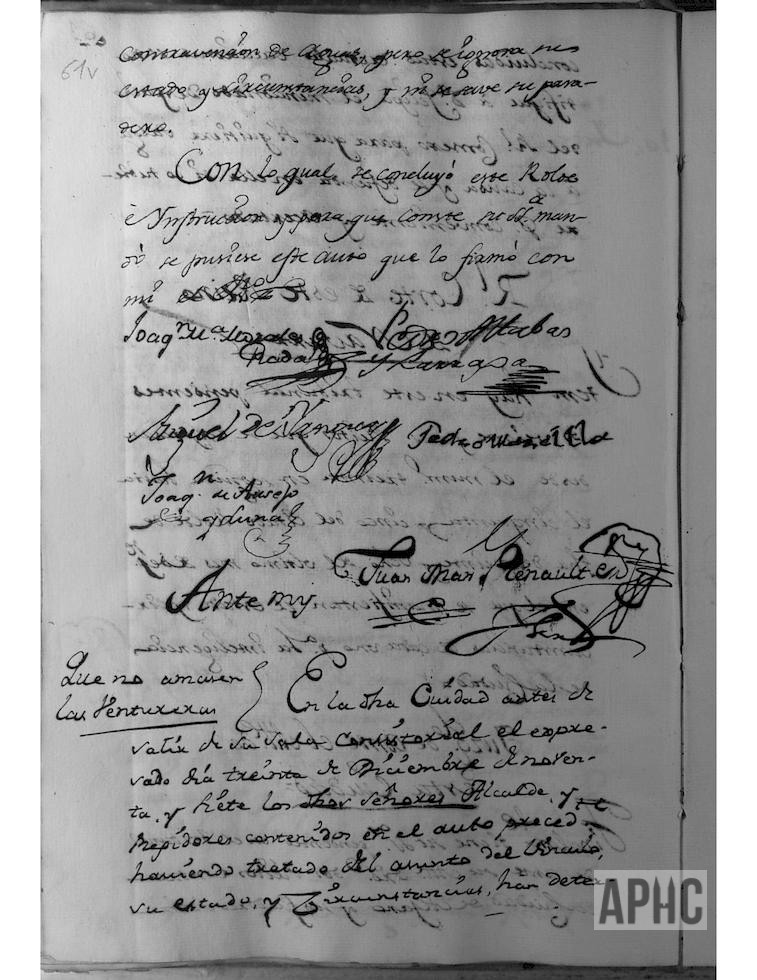 61v
contravenzon de aguas, pero se ignora sus
estado y circunstancias, y ni se save su para-
dero.
Con lo qual se concluyó este Rolde
è Ynstruccion y para que conste su Sª. man-
dó se pusiese este auto que lo firmó con
mi
Joaqn. Mª.
Rada
y Larraga
Miguel de
Pedro
Joaqn. de Ausejo
y
Juan Man. Renault
Ante my
Que no amasen
las Ventureras
En la dha Ciudad antes de
salir de su sala Consistorial el expre-
sado dia treinta de Diziembre de noven-
ta, y siete los dhos señores Alcalde, y
Rexidores contenidos en el auto preced.
haviendo tratado del asunto del Vinculo,
su estado, y Circunstancias, han deter-
APHC